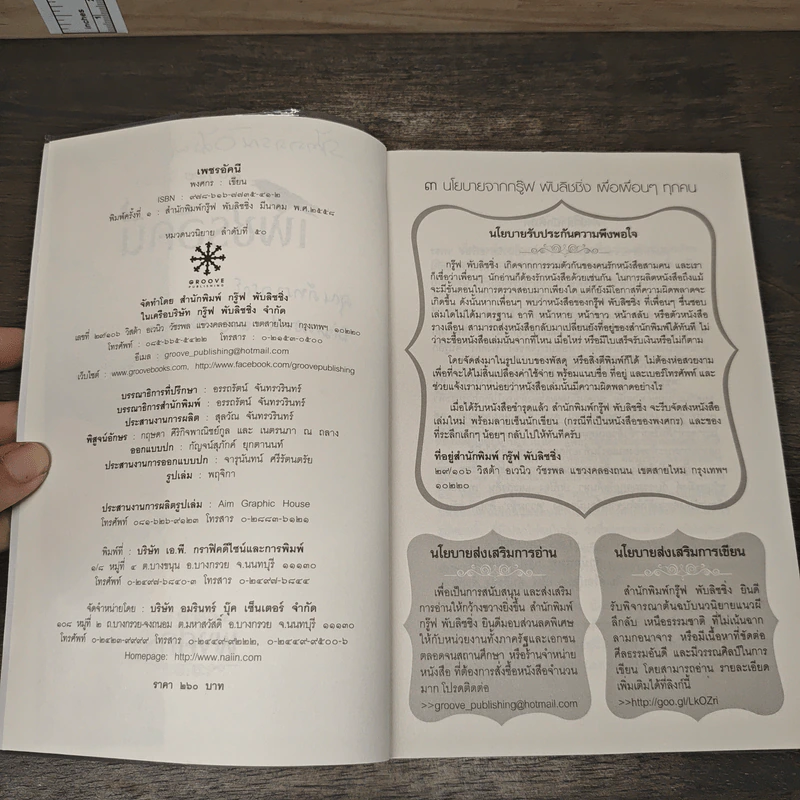 inches
เพชรอัคนี
พงศกร : เขียน
ISBN : ๙๗๘-๖๑๖-๗๗๓๕-๔๑-๒
พิมพ์ครั้งที่ ๑ : สำนักพิมพ์กรู๊ฟ พับลิชชิ่ง มีนาคม พ.ศ.๒๕๕๘
หมวดนวนิยาย ลำดับที่ ๕๐
GROOVE
PUBLISHING
จัดทำโดย สำนักพิมพ์ กรู๊ฟ พับลิชชิ่ง
ในเครือบริษัท กรู๊ฟ พับลิชชิ่ง จำกัด
เลขที่ ๒๙/๑๐๖ วิสต้า อเวนิว วัชรพล แขวงคลองถนน เขตสายไหม กรุงเทพฯ ๑๐๒๒๐
โทรศัพท์ : ๐๘๕-๖๖๕-๕๔๒๒ โทรสาร : ๐-๒๑๕๓-๐๕๐๐
อีเมล : groove_publishing@hotmail.com
เว็บไซต์ : www.groovebooks.com, http://www.facebook.com/groovepublishing
บรรณาธิการที่ปรึกษา : อรรถรัตน์ จันทรวรินทร์
บรรณาธิการสำนักพิมพ์ : อรรถรัตน์ จันทรวรินทร์
ประสานงานการผลิต : สุลวัณ จันทรวรินทร์
พิสูจน์อักษร : กฤษดา ศิริกิจพาณิชย์กูล และ เนตรนภา ณ ถลาง
ออกแบบปก : กัญจน์สุภัคค์ ยุกตานนท์
ประสานงานการออกแบบปก : จารุนันทน์ ศรีรัตนตรัย
รูปเล่ม : พฤจิกา
ประสานงานการผลิตรูปเล่ม : Aim Graphic House
โทรศัพท์ ๐๘๑-๖๒๖-๙๑๒๓ โทรสาร ๐-๒๘๘๓-๖๑๒๑
พิมพ์ที่ : บริษัท เอ.พี. กราฟิคดีไซน์และการพิมพ์
๑/๘ หมู่ที่ ๔ ต.บางขนุน อ.บางกรวย จ.นนทบุรี ๑๑๑๓๐
โทรศัพท์ ๐-๒๔๙๗-๖๘๔๐-๓ โทรสาร ๐-๒๔๙๗-๖๘๔๔
จัดจำหน่ายโดย : บริษัท อมรินทร์ บุ๊ค เซ็นเตอร์ จำกัด
๑๐๘ หมู่ที่ ๒ ถ.บางกรวย-จงถนอม ต.มหาสวัสดิ์ อ.บางกรวย จ.นนทบุรี ๑๑๑๓๐
โทรศัพท์ ๐-๒๔๒๓-๙๙๙๙ โทรสาร ๐-๒๔๔๙-๙๒๒๒, ๐-๒๔๔๙-๙๕๐๐-๖
Homepage: http://www.naiin.com
ราคา ๒๖๐ บาท
๓ นโยบายจากกรู๊ฟ พับลิชชิ่ง เพื่อเพื่อนๆ ทุกคน
นโยบายรับประกันความพึงพอใจ
กรู๊ฟ พับลิชชิ่ง เกิดจากการรวมตัวกันของคนรักหนังสือสามคน และเรา
ก็เชื่อว่าเพื่อนๆ นักอ่านก็ต้องรักหนังสือด้วยเช่นกัน ในการผลิตหนังสือถึงแม้
จะมีขั้นตอนในการตรวจสอบมากเพียงใด แต่ก็ยังมีโอกาสที่ความผิดพลาดจะ
เกิดขึ้น ดังนั้นหากเพื่อนๆ พบว่าหนังสือของกรู๊ฟ พับลิชชิ่ง ที่เพื่อนๆ ชื่นชอบ
เล่มใดไม่ได้มาตรฐาน อาทิ หน้าหาย หน้าขาว หน้าสลับ หรือตัวหนังสือ
รางเลือน สามารถส่งหนังสือกลับมาเปลี่ยนยังที่อยู่ของสำนักพิมพ์ได้ทันที ไม่
ว่าจะซื้อหนังสือเล่มนั้นจากที่ไหน เมื่อไหร่ หรือมีใบเสร็จรับเงินหรือไม่ก็ตาม
โดยจัดส่งมาในรูปแบบของพัสดุ หรือสิ่งตีพิมพ์ก็ได้ ไม่ต้องห่อสวยงาม
เพื่อที่จะได้ไม่สิ้นเปลืองค่าใช้จ่าย พร้อมแนบชื่อ ที่อยู่ และเบอร์โทรศัพท์ และ
ช่วยแจ้งเรามาหน่อยว่าหนังสือเล่มนั้นมีความผิดพลาดอย่างไร
เมื่อได้รับหนังสือชำรุดแล้ว สำนักพิมพ์กรู๊ฟ พับลิชชิ่ง จะรีบจัดส่งหนังสือ
เล่มใหม่ พร้อมลายเซ็นนักเขียน (กรณีที่เป็นหนังสือของพงศกร) และของ
ที่ระลึกเล็กๆ น้อยๆ กลับไปให้ทันทีครับ
ที่อยู่สำนักพิมพ์ กรู๊ฟ พับลิชชิ่ง
๒๙/๑๐๖ วิสต้า อเวนิว วัชรพล แขวงคลองถนน เขตสายไหม กรุงเทพฯ
๑๐๒๒๐
นโยบายส่งเสริมการอ่าน
เพื่อเป็นการสนับสนุน และส่งเสริม
การอ่านให้กว้างขวางยิ่งขึ้น สำนักพิมพ์
กรู๊ฟ พับลิชชิ่ง ยินดีมอบส่วนลดพิเศษ
ให้กับหน่วยงานทั้งภาครัฐและเอกชน
ตลอดจนสถานศึกษา หรือร้านจำหน่าย
หนังสือ ที่ต้องการสั่งซื้อหนังสือจำนวน
มาก โปรดติดต่อ
>>groove_publishing@hotmail.com
นโยบายส่งเสริมการเขียน
สำนักพิมพ์กรู๊ฟ พับลิชชิ่ง ยินดี
รับพิจารณาต้นฉบับนวนิยายแนวผี
ลึกลับ เหนือธรรมชาติ ที่ไม่เน้นฉาก
ลามกอนาจาร หรือมีเนื้อหาที่ขัดต่อ
ศีลธรรมอันดี และมีวรรณศิลป์ในการ
เขียน โดยสามารถอ่าน รายละเอียด
เพิ่มเติมได้ที่ลิงก์นี้
>>http://goo.gl/LkOZri